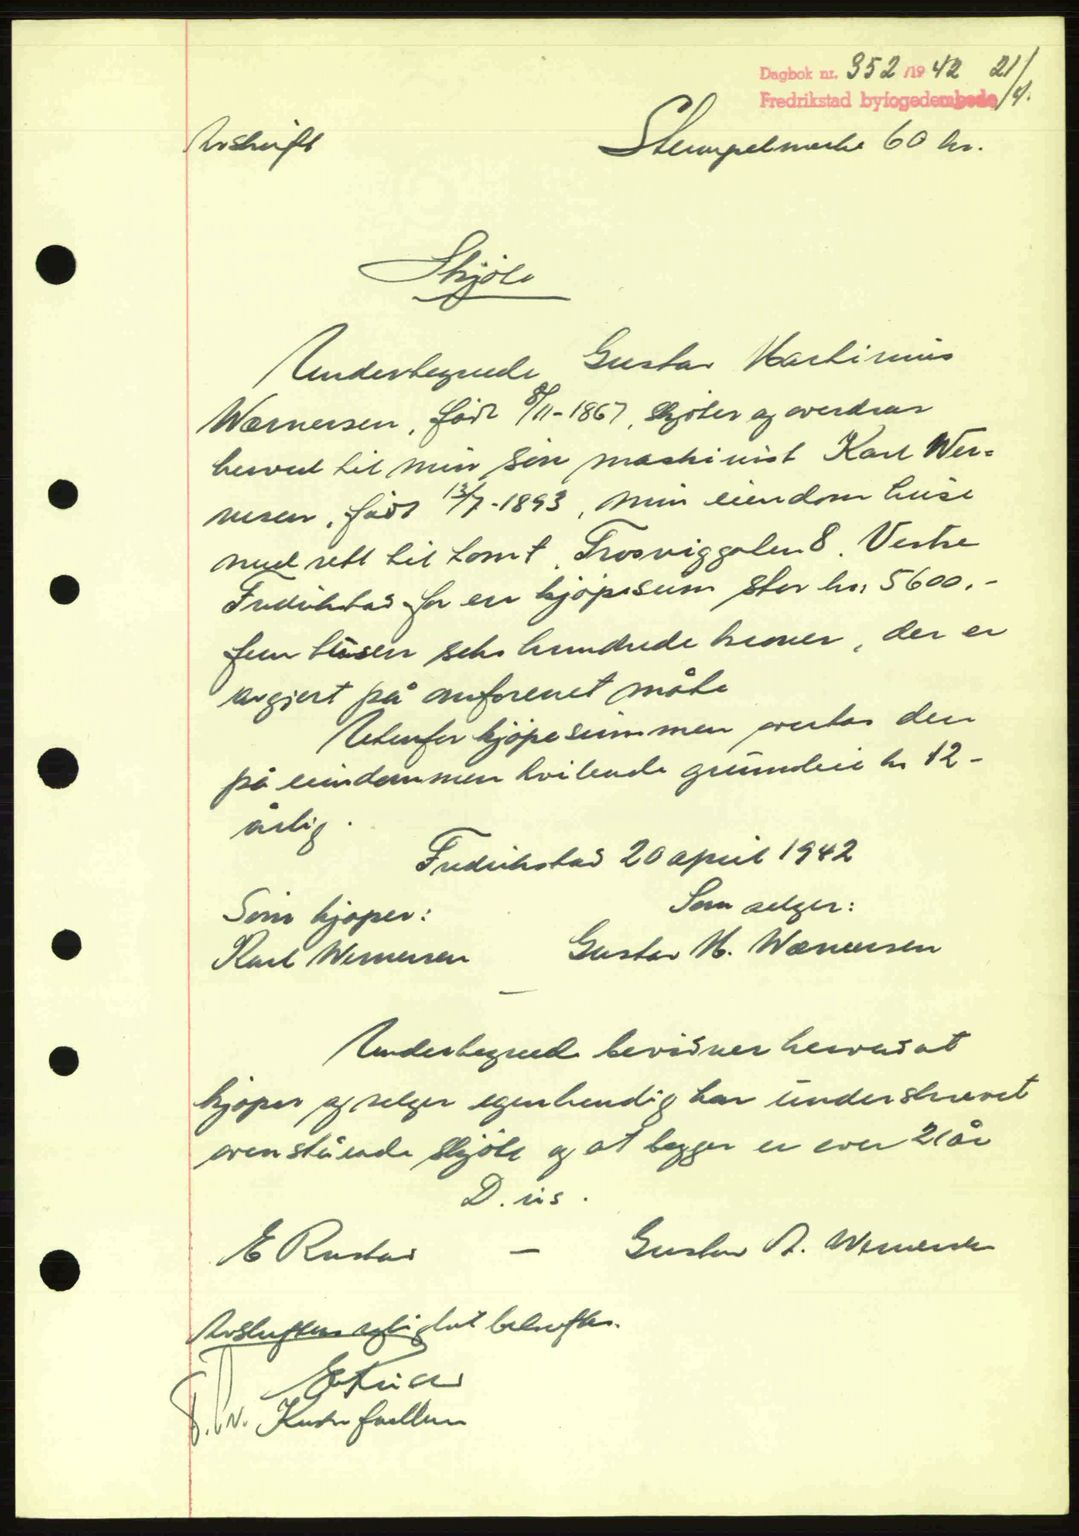 Dagbok nr. 952 /19 42 21/4.
Fredrikstad byfogedembede
Avskrift
Stempelmerke 60 kr.
Skjöte
Undertegnede Gustav Martinius
Wærnersen, född 8/11-1867, skjöter og overdrar
herved til min sön maskinist Karl Wer=
nersen, född 13/7-1893, min eiendom huse
med rett til tomt, Trosviggaten 8. Vestre
Fredrikstad for en kjöpesum stor kr. 5600.-
fem tusen seks hundrede kroner, der er
avgjort på omforenet måte
Utenfor kjöpesummen overtas den
på eiendommen hvilende grunnleie kr 12-
årlig.
Fredrikstad 20 april 1942
Som kjöper:
Som selger:
Karl Wernersen
Gustav M. Wærnersen
Undertegnede bevidner herved at
kjöper og selger egenhendig har underskrevet
ovenstående skjöte og at begge er over 21 år
D. u s.
E Rustad — Gustav A. Wernersen
Avskriftens rigtighet bekreftes.